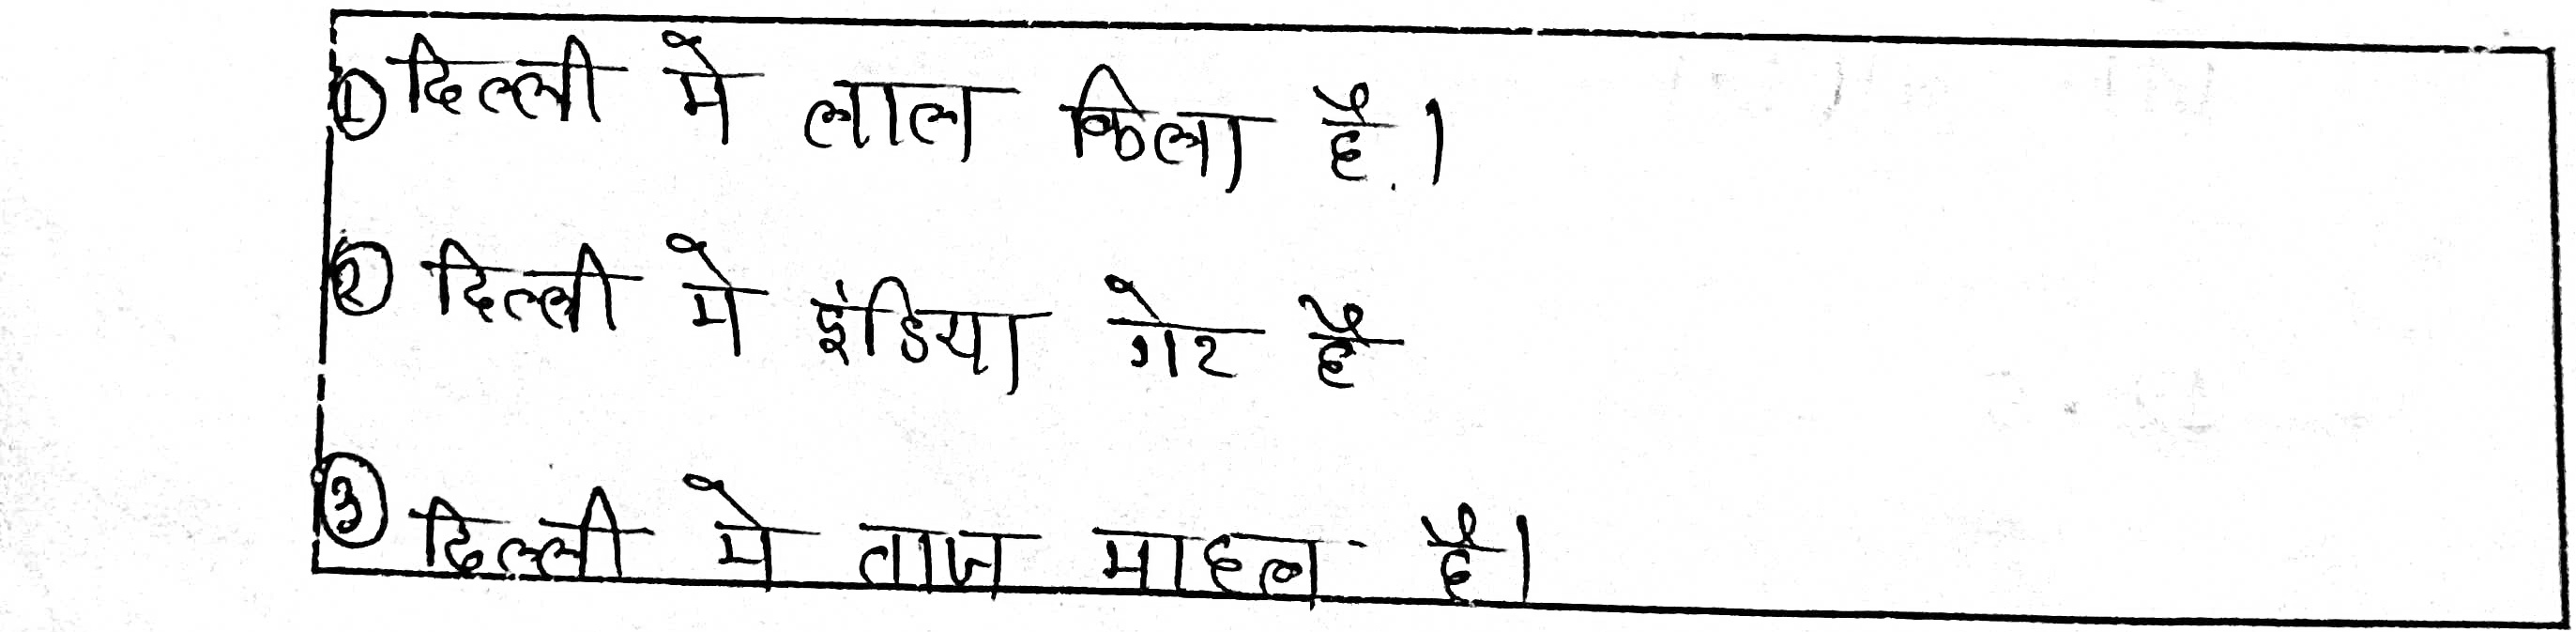 ① दिल्ली मे लाल किला है।
② दिल्ली मे इंडिया गेर है
③ दिल्ली मे ताज माहल है।